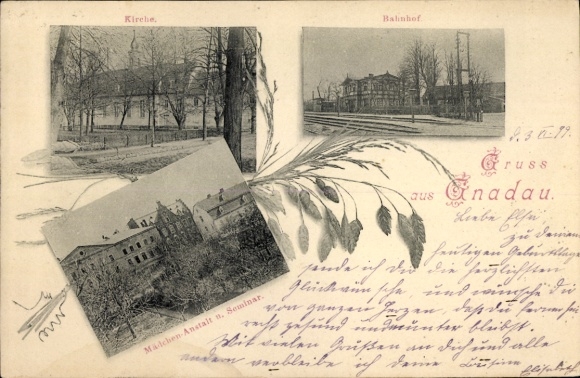 Kirche.
Bahnhof.
d. 3. VI. 99.
Gruss
aus Gnadau.
Mädchen-Anstalt u. Seminar.
Liebe Elsa,
zu deinem
heutigen Geburtstage
sende ich dir die herzlichsten
Glückwünsche, und wünsche dir
von ganzen Herzen, dass du fernerhin
recht gesund und munter bleibst.
Mit vielen Grüßen an dich und alle
andern verbleibe ich deine Cousine
Elisabeth